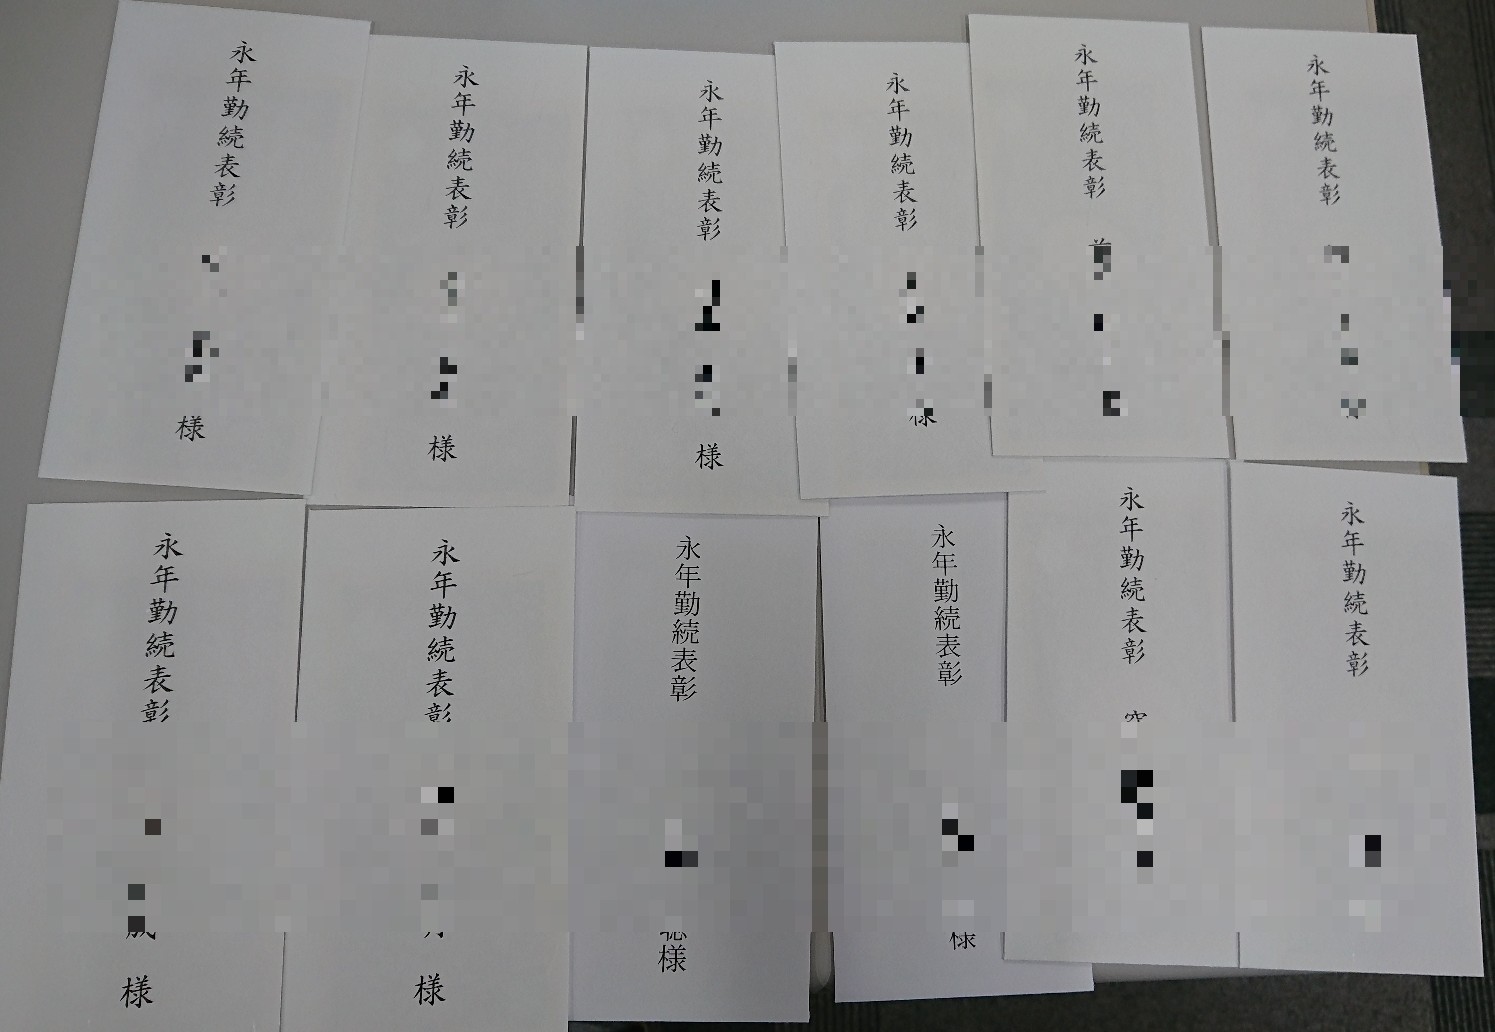 永年勤続表彰
様
永年勤続表彰
様
永年勤続表彰
様
永年勤続表彰
様
永年勤続表彰
永年勤続表彰
永年勤続表彰
様
永年勤続表彰
様
永年勤続表彰
聡様
永年勤続表彰
様
永年勤続表彰
永年勤続表彰